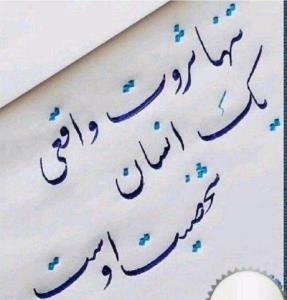 تنها ثروت واقعی
یک انسان
شخصیت اوست